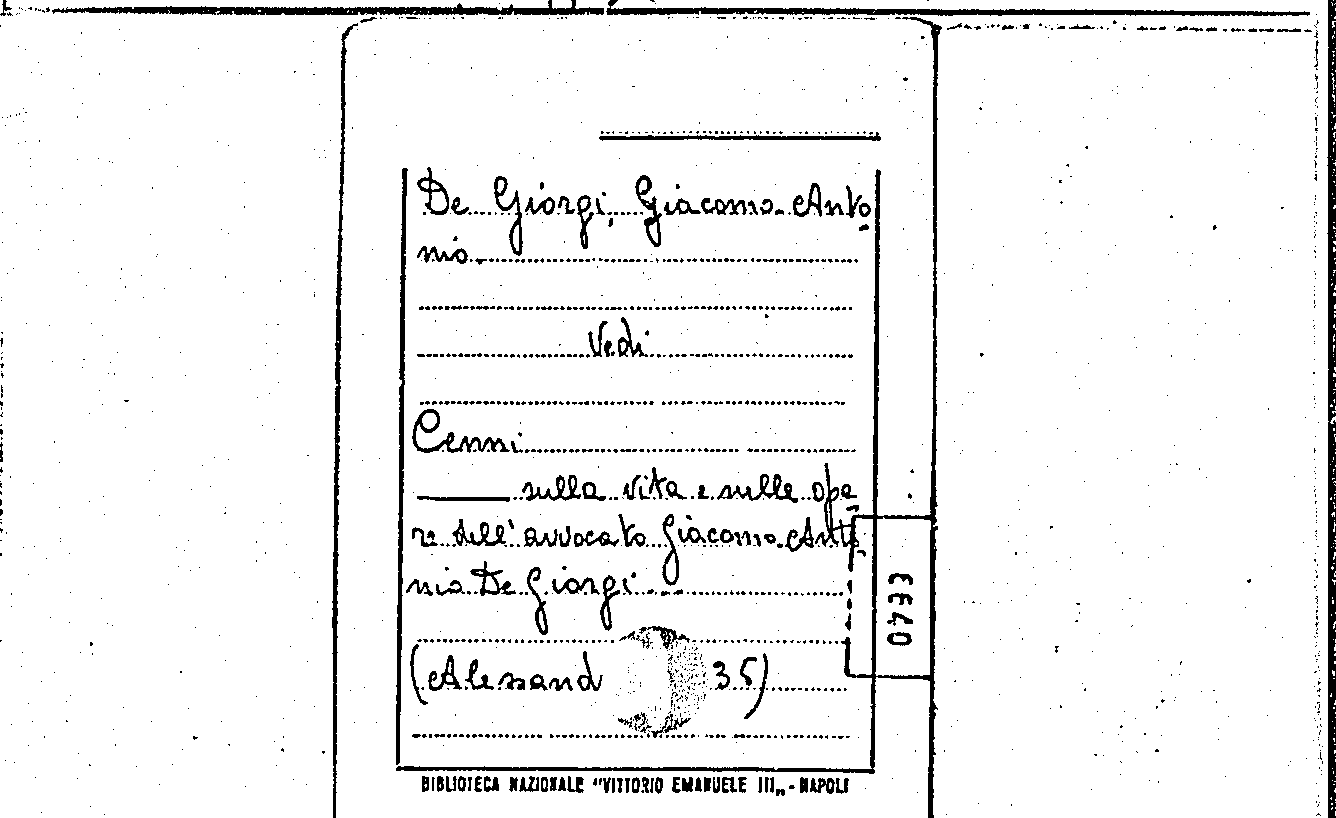 De Giorgi, Giacomo Anto
nio.
Vedi
Cenni
sulla vita e sulle ope
re dell'avvocato Giacomo Anto
nio De Giorgi...
(Alessand 35)
0433
BIBLIOTECA NAZIONALE "VITTORIO EMANUELE III„ - NAPOLI